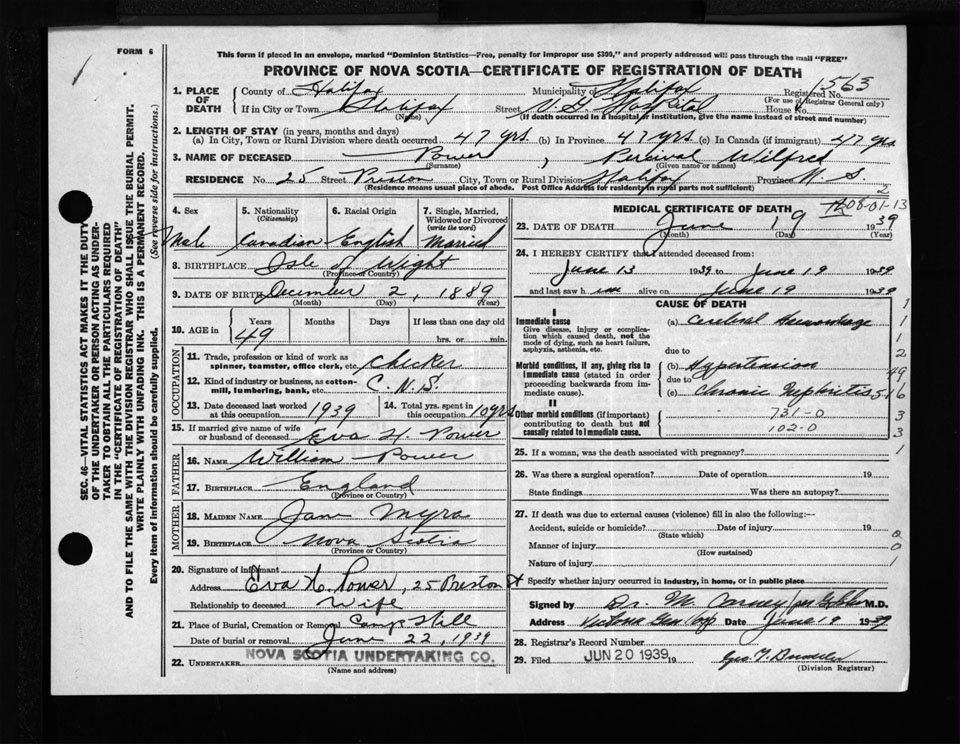 FORM 6
This form if placed in an envelope, marked "Dominion Statistics—Free, penalty for improper use $300," and properly addressed will pass through the mail "FREE"
PROVINCE OF NOVA SCOTIA—CERTIFICATE OF REGISTRATION OF DEATH
SEC. 46—VITAL STATISTICS ACT MAKES IT THE DUTY
OF THE UNDERTAKER OR PERSON ACTING AS UNDER-
TAKER TO OBTAIN ALL THE PARTICULARS REQUIRED
IN THE "CERTIFICATE OF REGISTRATION OF DEATH"
AND TO FILE THE SAME WITH THE DIVISION REGISTRAR WHO SHALL ISSUE THE BURIAL PERMIT.
WRITE PLAINLY WITH UNFADING INK. THIS IS A PERMANENT RECORD.
Every item of information should be carefully supplied. (See reverse side for instructions.)
1. PLACE OF DEATH County of Halifax Municipality of Halifax Registered No. 1563
(For use of Registrar General only)
If in City or Town Halifax Street V. G. Hospital House No.
(Name) (If death occurred in a hospital or institution, give the name instead of street and number)
2. LENGTH OF STAY (in years, months and days)
(a) In City, Town or Rural Division where death occurred 47 yrs. (b) In Province 47 yrs. (c) In Canada (if immigrant) 47 yrs
3. NAME OF DECEASED Power, Percival Wilfred
(Surname) (Given name or names)
RESIDENCE No. 25 Street Preston City, Town or Rural Division Halifax Province N. S.
(Residence means usual place of abode. Post Office Address for residents in rural parts not sufficient) 2
4. Sex 5. Nationality (Citizenship) 6. Racial Origin 7. Single, Married, Widowed or Divorced (write the word)
Male Canadian English Married
8. BIRTHPLACE Isle of Wight
(Province or Country)
9. DATE OF BIRTH December 2, 1889
(Month) (Day) (Year)
10. AGE in Years Months Days If less than one day old
49 hrs. or min.
OCCUPATION
11. Trade, profession or kind of work as
spinner, teamster, office clerk, etc. Checker
12. Kind of industry or business, as cotton-
mill, lumbering, bank, etc. C. N. S.
13. Date deceased last worked at this occupation 1939 14. Total yrs. spent in this occupation 10 yrs
15. If married give name of wife
or husband of deceased Eva H. Power
FATHER
16. NAME William Power
17. BIRTHPLACE England
(Province or Country)
MOTHER
18. MAIDEN NAME Jane Myra
19. BIRTHPLACE Nova Scotia
(Province or Country)
20. Signature of informant
Address Eva H. Power, 25 Preston St
Relationship to deceased Wife
21. Place of Burial, Cremation or Removal Camp Hill
Date of burial or removal June 22, 1939
22. UNDERTAKER NOVA SCOTIA UNDERTAKING CO.
(Name and address)
MEDICAL CERTIFICATE OF DEATH 08-01-13
23. DATE OF DEATH June 19 1939
(Month) (Day) (Year)
24. I HEREBY CERTIFY that I attended deceased from:
June 13 1939 to June 19 1939
and last saw him alive on June 19 1939
CAUSE OF DEATH
I
Immediate cause (a) Cerebral Hemorrhage
Give disease, injury or complica-
tion which caused death, not the
mode of dying, such as heart failure,
asphyxia, asthenia, etc. due to
Morbid conditions, if any, giving rise to (b) Hypertension
immediate cause (stated in order due to
proceeding backwards from im-
mediate cause). (c) Chronic Nephritis
II
Other morbid conditions (if important) 731-0
contributing to death but not 102-0
causally related to immediate cause.
1
1
1
2
49
516
3
3
1
25. If a woman, was the death associated with pregnancy?
26. Was there a surgical operation? Date of operation 19
State findings Was there an autopsy?
27. If death was due to external causes (violence) fill in also the following:—
Accident, suicide or homicide? Date of injury 19
(State which)
Manner of injury 0
(How sustained)
Nature of injury 1
Specify whether injury occurred in industry, in home, or in public place
Signed by Dr. M. Carney M.D.
Address Victoria Gen Hosp Date June 19 1939
28. Registrar's Record Number
29. Filed JUN 20 1939 19
(Division Registrar)